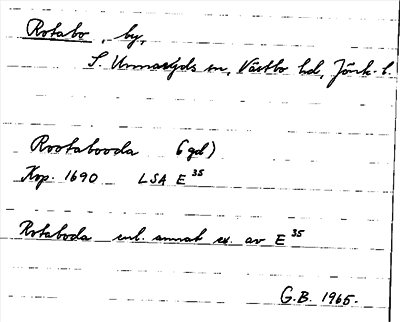 Rotabo, by,
S. Unnaryds sn, Västbo hd, Jönk. l.
Rootabooda 6 gd)
Kop. 1690 LSA E 35
Rotaboda enl. annat ex. av E 35
G.B. 1965.